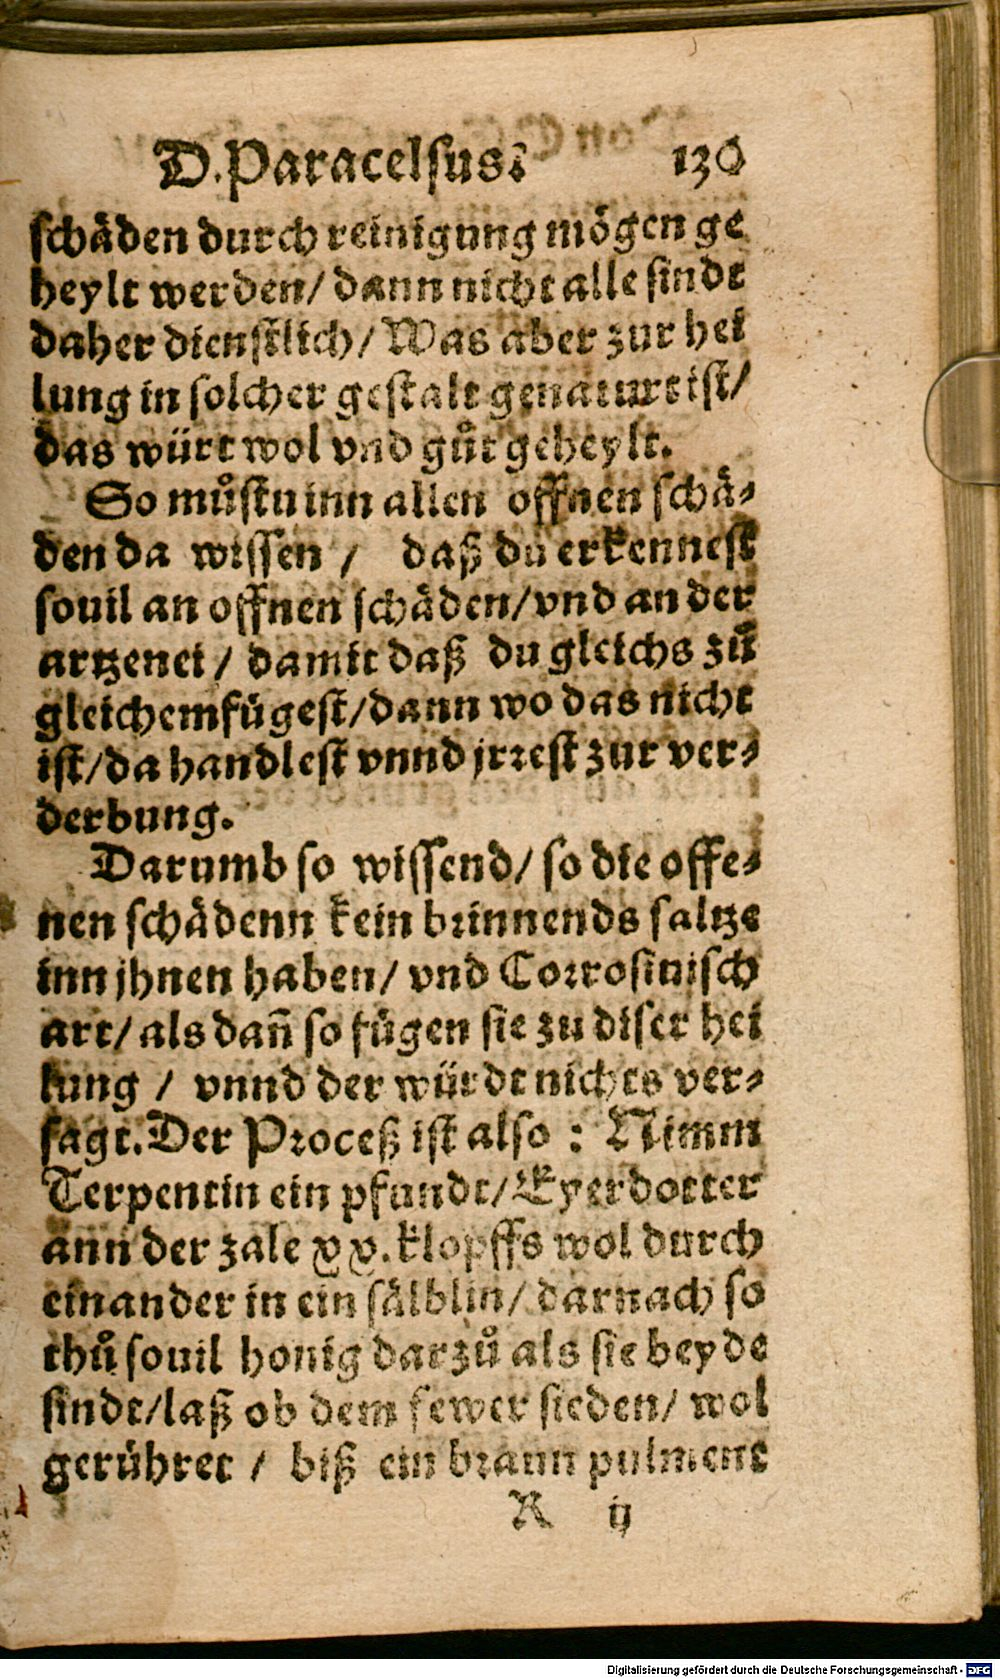 D. Paracelsus. 130
schäden durch reinigung mögen ge
heylt werden/ dann nicht alle sindt
daher dienstlich/ Was aber zur hei
lung in solcher gestalt genaturt ist/
das würt wol vnd gůt geheylt.
So můstu inn allen offnen schä-
den da wissen / daß du erkennest
souil an offnen schäden/ vnd an der
artzenei / damit daß du gleichs zů
gleichem fügest/ dann wo das nicht
ist/ da handlest vnnd jrrest zur ver-
derbung.
Darumb so wissend/ so die offe-
nen schädenn kein brinnends saltze
inn jhnen haben/ vnd Corrosiuisch
art/ als dañ so fügen sie zu diser hei
lung / vnnd der würdt nichts ver-
sagt. Der Proceß ist also : Nimm
Terpentin ein pfundt/ Eyerdotter
ann der zale xx. klopffs wol durch
einander in ein sälblin/ darnach so
thů souil honig darzů als sie beyde
sindt/ laß ob dem fewer sieden/ wol
gerühret / biß ein braun pulment
R ij
Digitalisierung gefördert durch die Deutsche Forschungsgemeinschaft - DFG